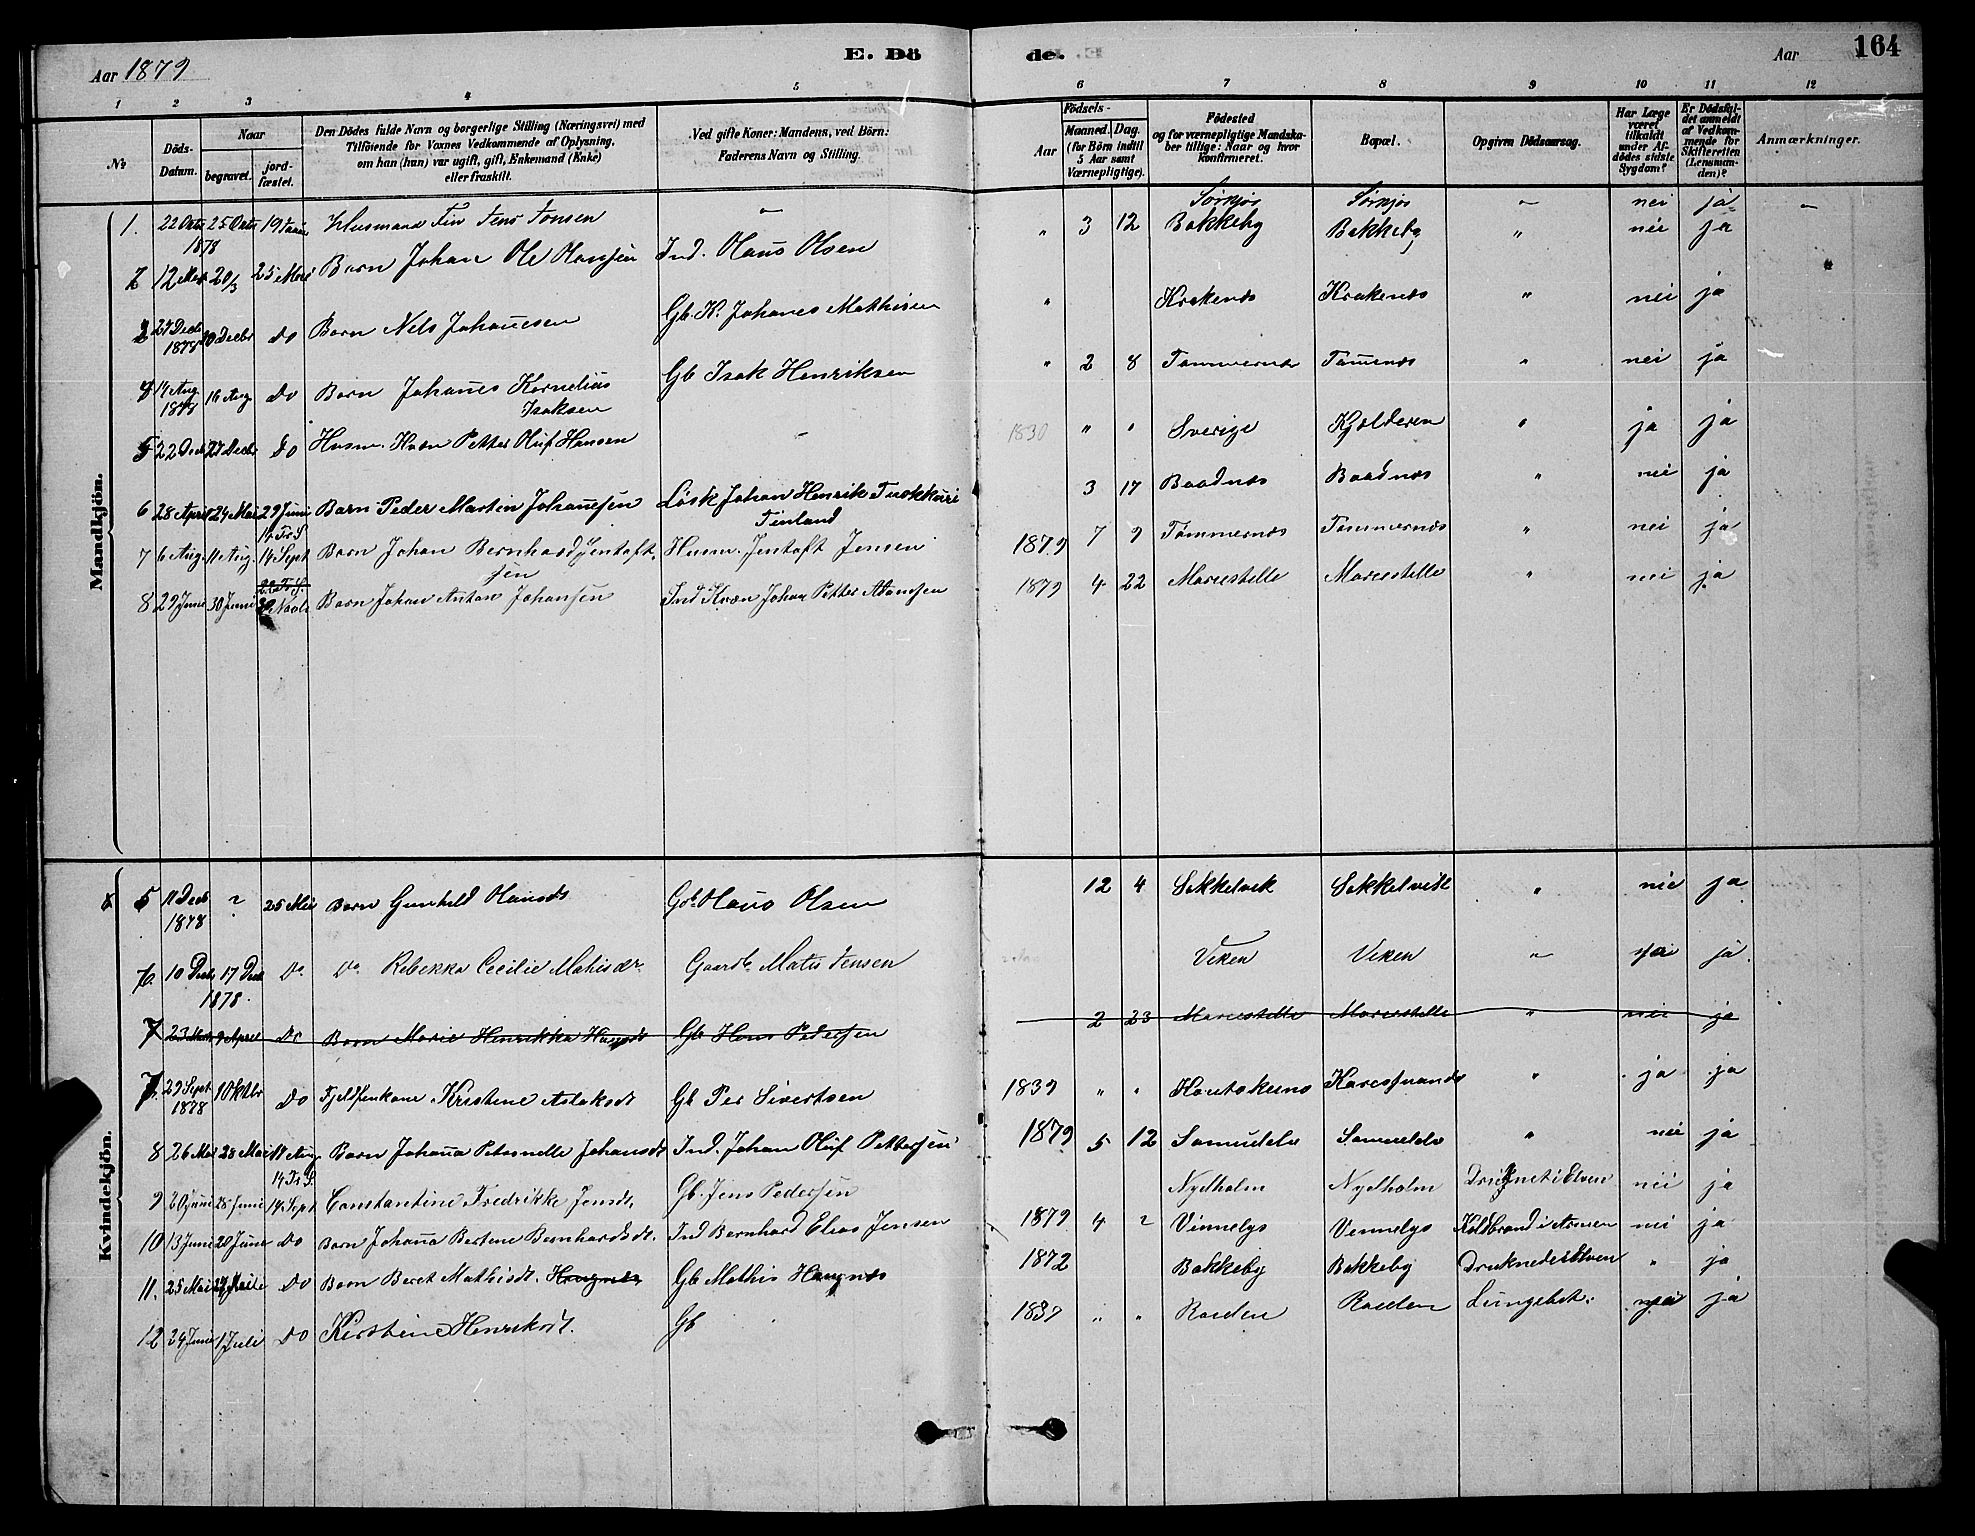 Aar 1879
E. Dö
de.
Aar
164
1 2 3 4 5 6 7 8 9 10 11 12
No
Döds-Datum.
Naar
begravet.
jord-fæstet.
Den Dödes fulde Navn og borgerlige Stilling (Næringsvei) med
Tilföiende for Voxnes Vedkommende af Oplysning,
om han (hun) var ugift, gift, Enkemand (Enke)
eller fraskilt.
Ved gifte Koner: Mandens, ved Börn:
Faderens Navn og Stilling.
Födsels-
Aar
Maaned. Dag.
(for Børn indtil
5 Aar samt
Værnepligtige).
Födested
og for værnepligtige Mandska-
ber tillige: Naar og hvor
konfirmeret.
Bopæl.
Opgiven Dödsaarsag.
Har Læge
været
tilkaldt
under Af-
dödes sidste
Sygdom?
Er Dödsfal-
det anmeldt
af Vedkom-
mende for
Skifteretten
(Lensman-
den)?
Anmærkninger.
Mandkjön.
1. 22 Octr 1878 25 Octr Husmand Fin Jens Jonsen - Sørkjos Sørkjos - nei ja -
2 12 20/3 25 Mai Barn Johan Ole Hansen Ind. Hans Olsen " 3 12 Bakkeby Bakkeby " nei ja
3 27 Decbr 1878 30 Decbr Do Barn Nels Johanesen Gb. K. Johanes Mathisen " Krakenæs Krakenæs " nei ja
4 14 Aug 1878 16 Aug. Do Barn Johanes Kornelius Isaksen Gb Isak Henriksen " 2 8 Tømmernæs " nei ja
5 22 Decbr 27 Decbr Do Husm. Kvæn Petter Oluf Hansen - 1830 " " Sverige Kjolderen " ja ja
6 28 April 24 Mai 29 Juni Barn Peder Martin Johanesen Løsk Johan Henrik Finland 3 17 Baadnæs Baadnæs " nei ja
7 6 Aug. 11 Aug. 14 Fr S 14 Sept Barn Johan Bernhard Jentoft-sen Husm. Jentoft Jensen 1879 7 9 Tømmernæs Tømmernæs " nei ja
8 29 Juni 30 Juni Barn Johan Anton Johansen Ind Kvæn Johan Petter Adamsen 1879 4 22 Marcestelle Marcestelle " nei ja
Kvindekjön.
5 11 Decb 1878 ? 25 Mai Barn Gunhild Hansdt Gb. Hans Olsen 12 4 Sekkelvik Sekkelvik " nei ja
6. 10 Decb 17 Decb 1878. Do Do Rebekka Cecilie Mathisdr. Gaardb Matis Jensen Viken Viken " ja
7 23 9 April Do Barn Marie Henrikka Hansdt Gb Hans Pedersen 2 23 Marcestelle Marcestelle " nei ja
7. 29 Sept 1878 Oktbr Do Fjeldfinkone Kristine Aslaksdt Gb Per Sivertsen 1839 " " Kautokeino Karesuando " ja ja
8 26 Mai 28 Mai Barn Johanna Petternelle Johansdt Ind. Johan Oluf Pettersen 1879 5 12 Samuelelv Samuelelv " nei ja
9 20 Juni 28 Juni 14 Fr S. 14 Sept Constantine Fredrikke Jensdt. Gb. Jens Pedersen Nydholm Nydholm Druknet i Elven nei ja
10 13 Juni 20 Juni Do Barn Johanna Bertine Bernhardsdt. Ind Bernhard Elias Jensen 1879 4 ? Vinnelys Vennelys Koldbrand i Armen nei ja
11. 25 Mai Do Barn Beret Mathisdt. Haugnæs Gb Mathis Haugnæs 1872 Bakkeby Bakkeby Druknede i Elven " ja
12 24 Juni 1 Juli Do Kirstine Henriksdt. Gb 1837 " " Raiden Raiden Lungebet. ja